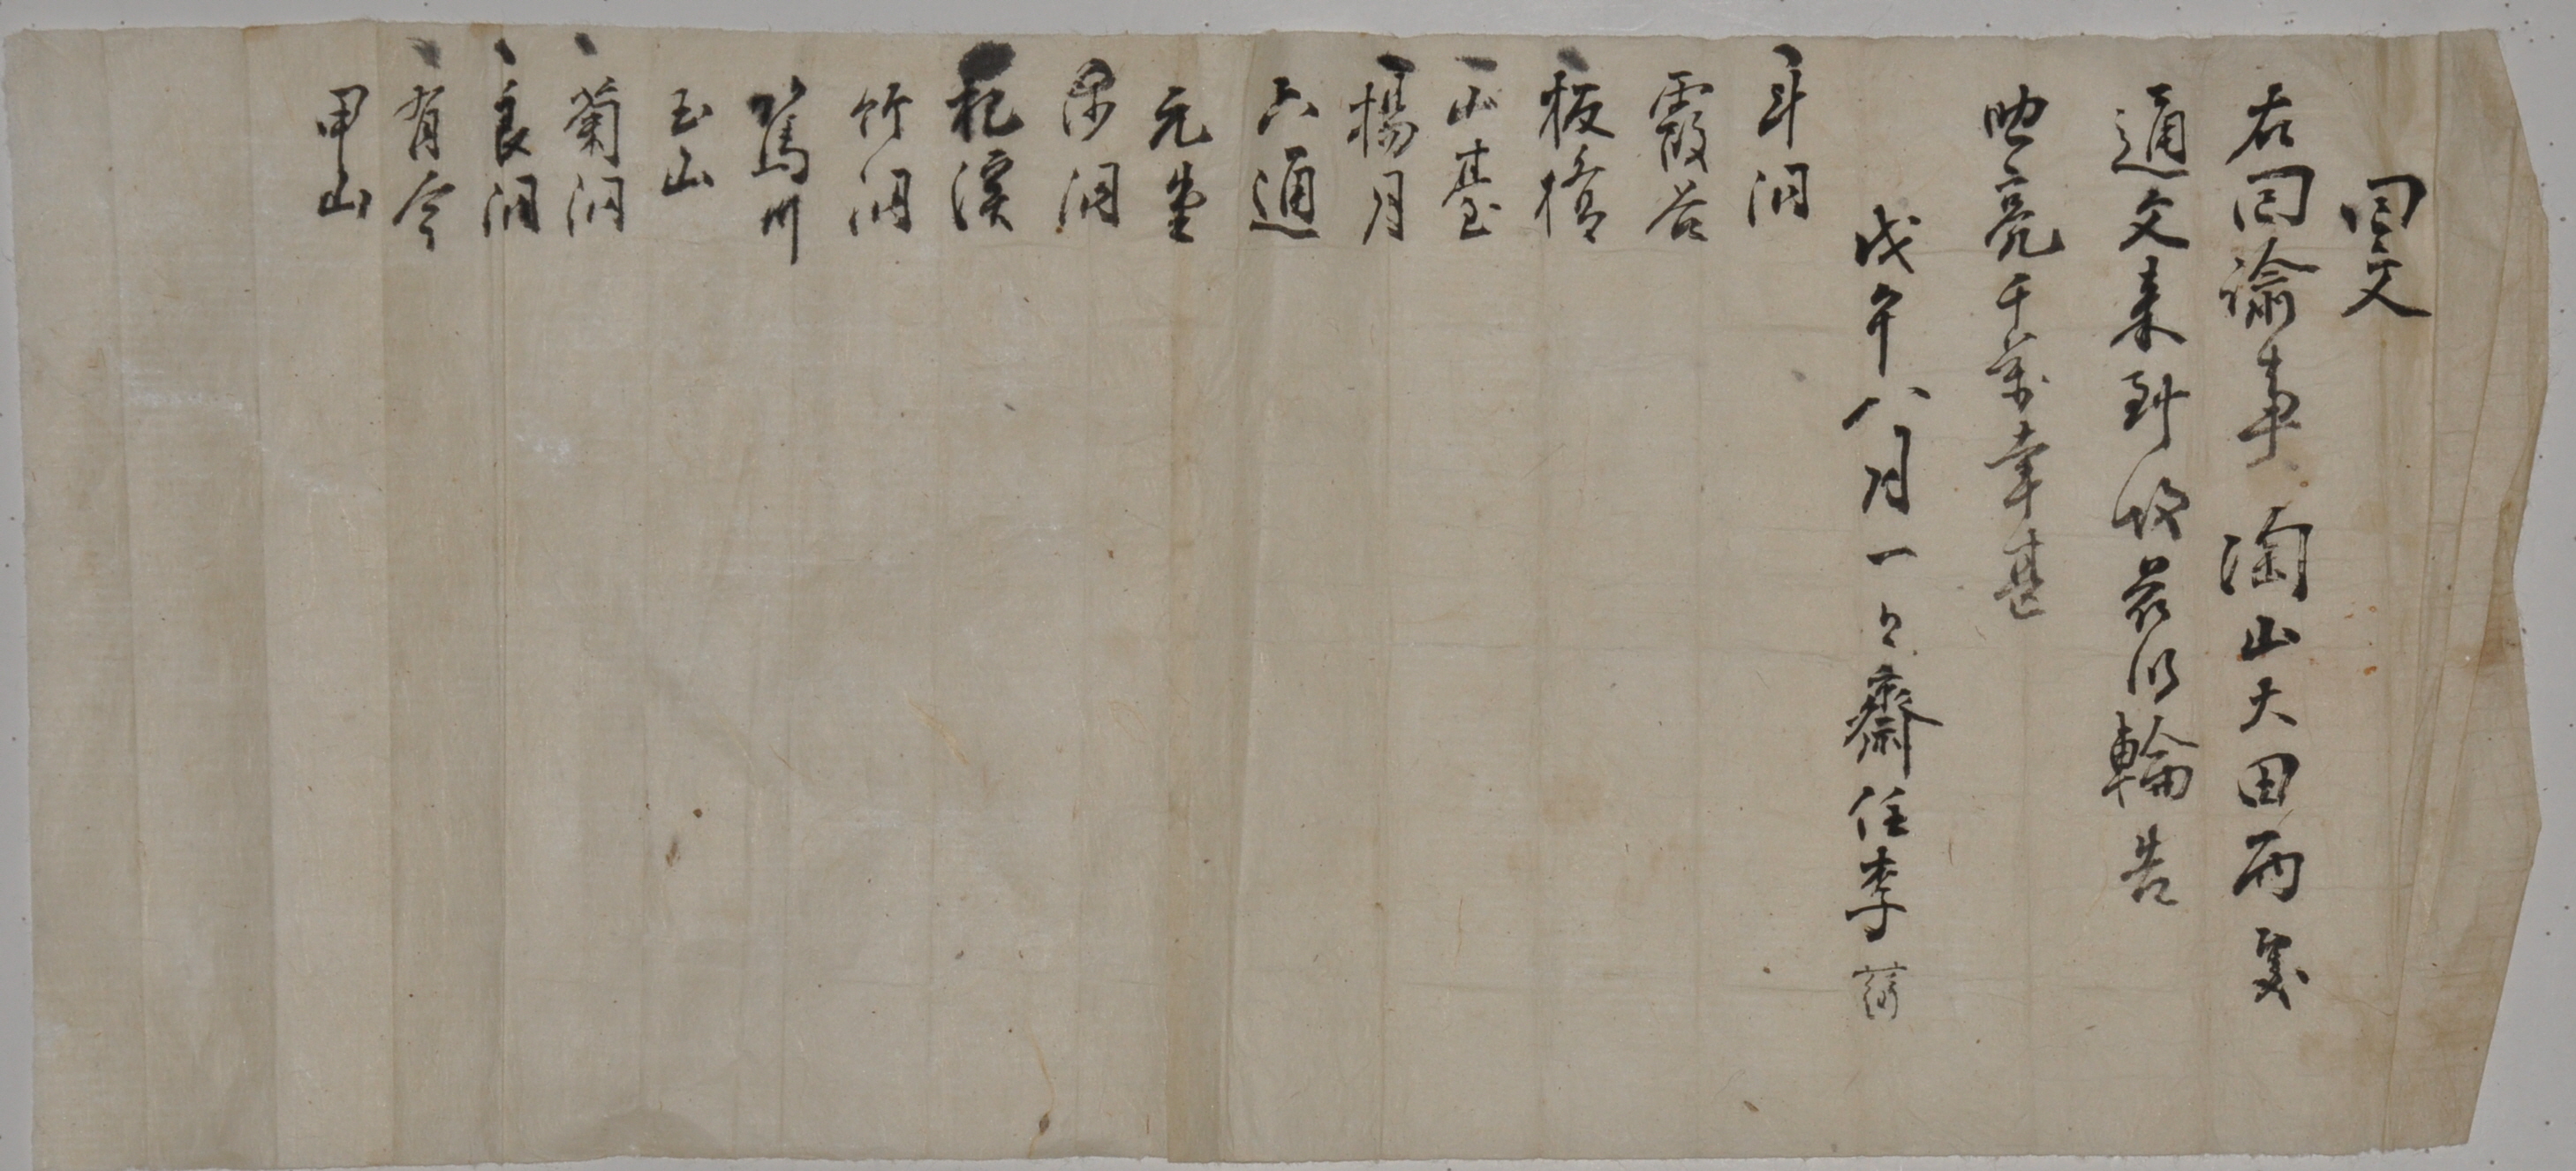 回文
右回諭事 陶山大田兩處
通文來到 故茲以輪告
照亮千萬幸甚
戊午八月一々齋任李
斗洞
霞谷
板橋
山臺
楊月
六通
元堂
洞
杞溪
竹洞
篤州
玉山
菊洞
良洞
有今
甲山